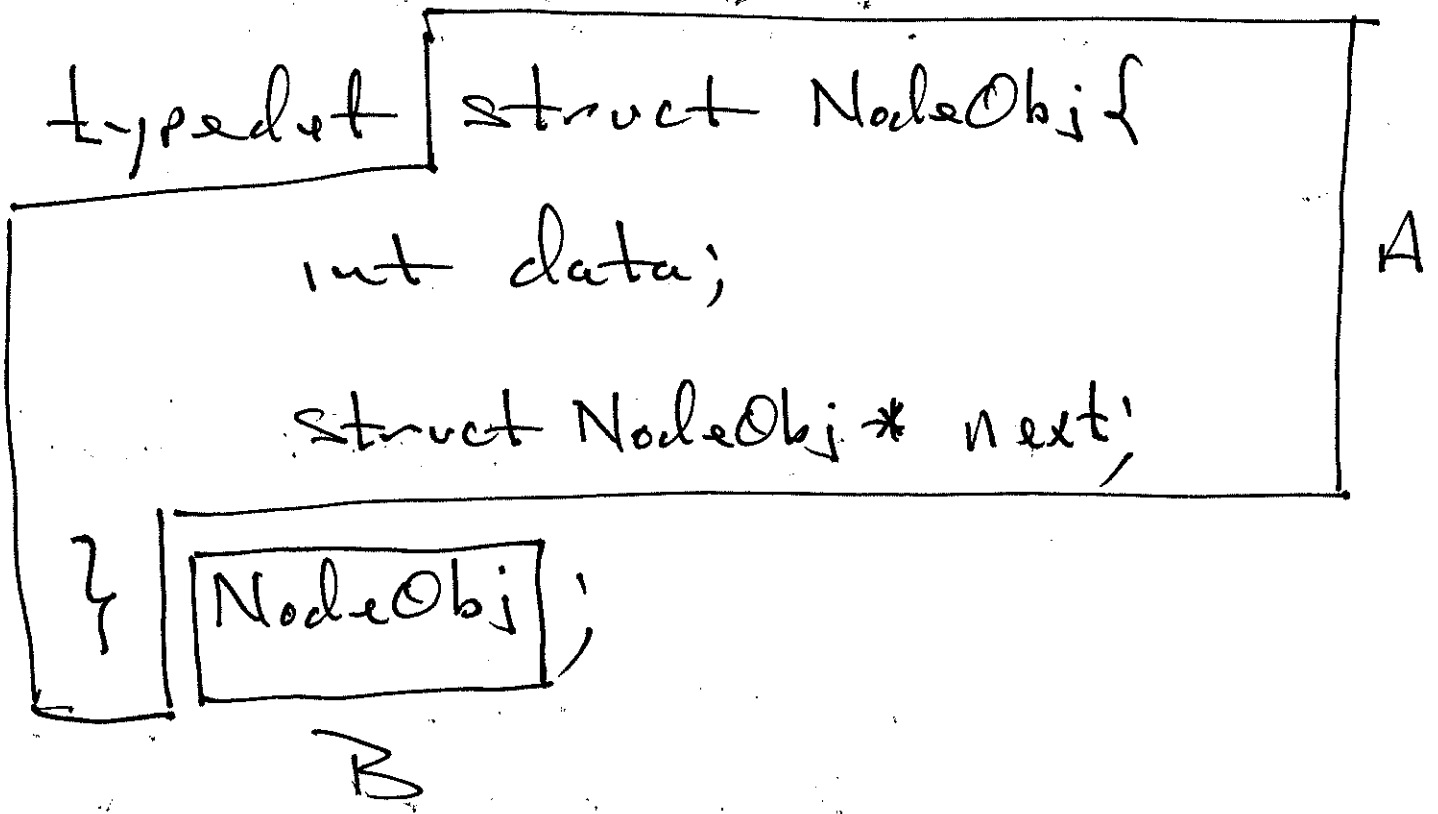 typedef struct NodeObj{
int data;
A
struct NodeObj* next;
} NodeObj;
B